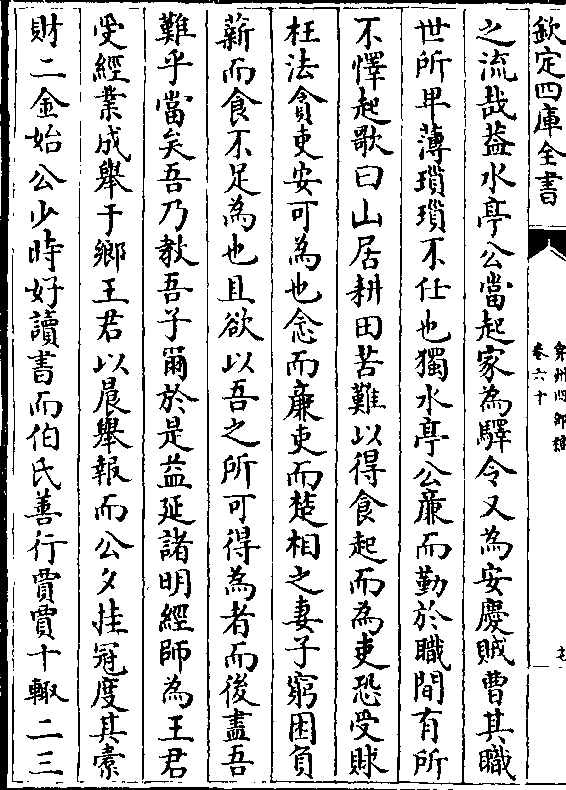 欽定四庫全書
弇州四部稿
卷六十
之流哉葢水亭公當起家為驛令又為安慶賊曹其職
世所卑薄瑣瑣不仕也獨水亭公亷而勤於職間有所
不懌起歌曰山居耕田苦難以得食起而為吏恐受賕
枉法貪吏安可為也念而亷吏而楚相之妻子窮困負
薪而食不足為也且欲以吾之所可得為者而後盡吾
難乎當矣吾乃敎吾子爾於是益延諸明經師為王君
受經業成舉于鄉王君以晨舉報而公夕挂冠度其橐
財二金始公少時好讀書而伯氏善行賈賈十輙二三